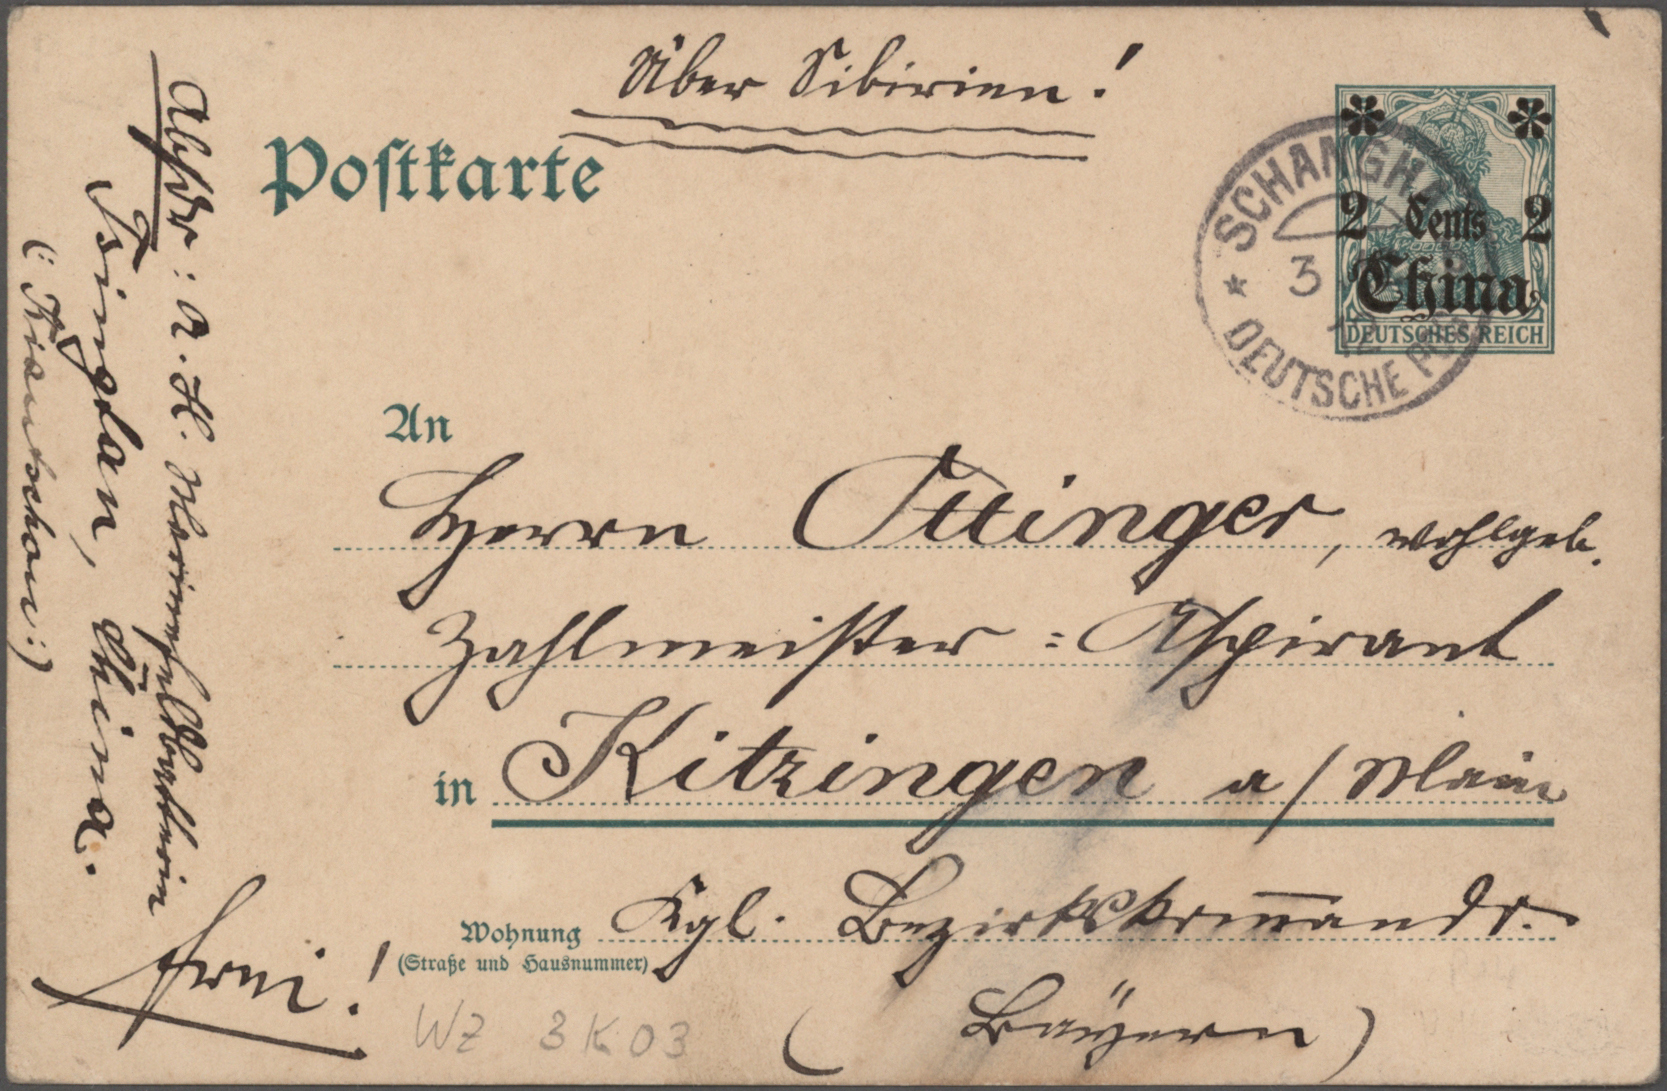 Über Sibirien!
Postkarte
2 Cents 2
China
DEUTSCHES REICH
SCHANGHAI
3
12
DEUTSCHE POST
An
Herrn Ottinger, wohlgeb.
Zahlmeister-Aspirant
in Kitzingen a/Main
Wohnung
(Straße und Hausnummer)
Kgl. Bezirkskommando.
(Bayern)
Absdr: A. H.
Tsingtau, China.
(: Kiautschou :)
frei!
WZ 3K03